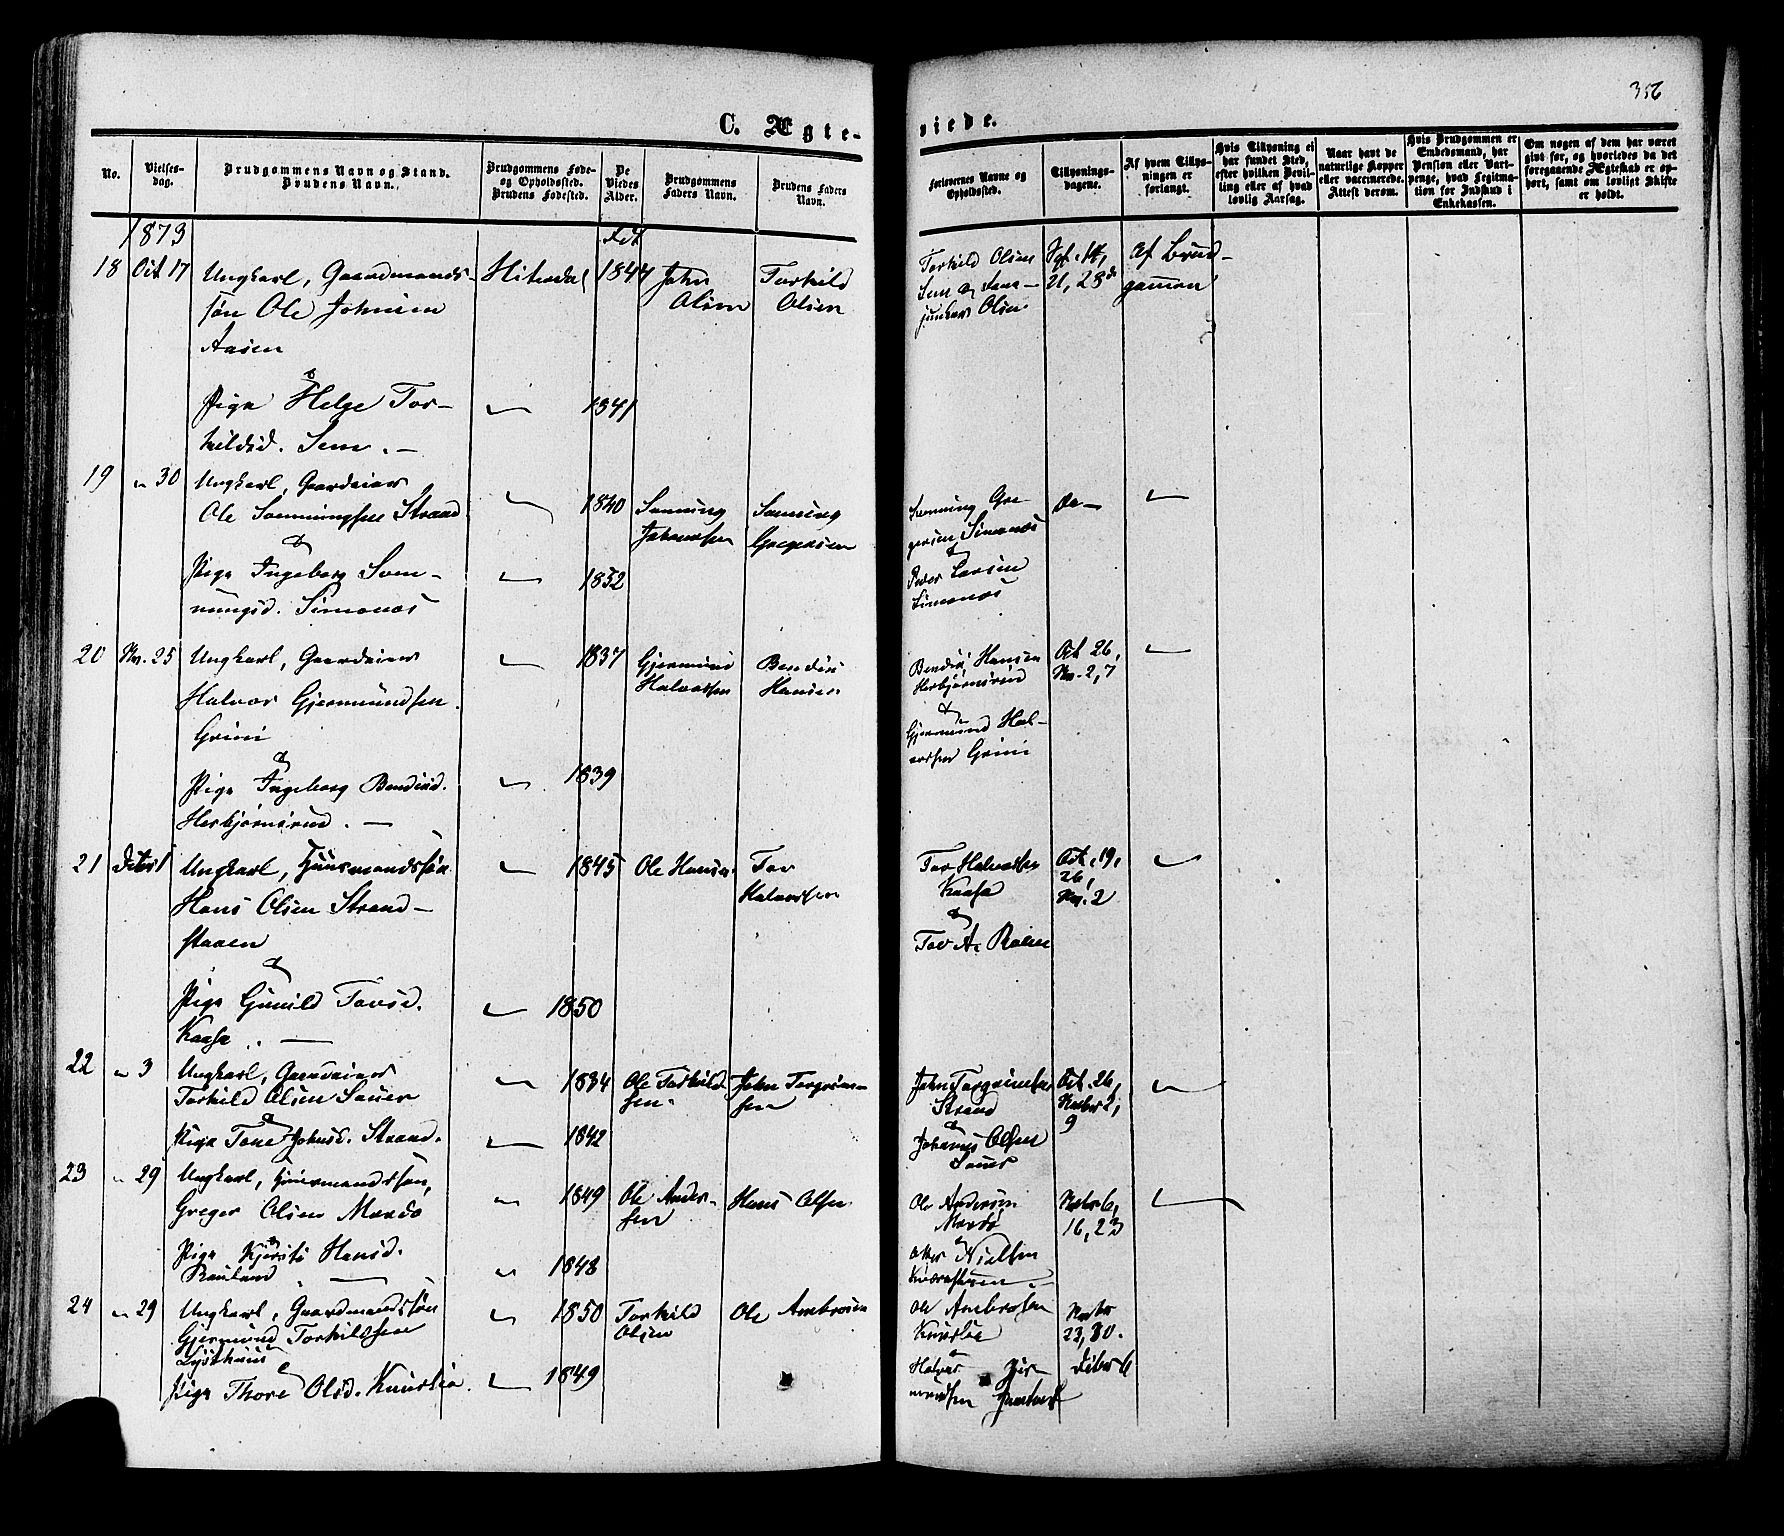 356
C. Ægte-
viede.
No.
Vielses-
dag.
Brudgommens Navn og Stand.
Brudens Navn.
Brudgommens Føde-
og Opholdssted.
Brudens Fødested.
De
Viedes
Alder.
Brudgommens
Faders Navn.
Brudens Faders
Navn.
Forlovernes Navne og
Opholdssted.
Tillysnings-
dagene.
Af hvem Tillys-
ningen er
forlangt.
Hvis Tillysning ei
har fundet Sted,
efter hvilken Bevil-
ling eller af hvad
lovlig Aarsag.
Naar havt de
naturlige Kopper
eller vaccinerede.
Attest derom.
Hvis Brudgommen er
Enkedsmand, har
Pension eller Vart-
penge, hvad Legitma-
tion for Indskud i
Enkekassen.
Om nogen af dem har været
givt før, og hvorledes da det
foregaaende Ægteskab er op-
hørt, samt om lovligt Skifte
er holdt.
1873
18 Oct 17 Ungkarl, Gaardmands-
søn Ole Johnsen
Aasen
Hiterdal 1844 John
Olsen
Torkild
Olsen
Torkild Olsen
Sem og
Olsen
Spt. 14,
21, 28de
Af Brud-
gommen
&
Pige Helge Tor-
kildsd. Sem. —
1841
19 " 30 Ungkarl, Gaardeier
Ole Sveinungsen Strand
1840 Sveinung
Johnsen
Sveinung
Gregersen
Sveinung Gre-
gersen Simonæs
&
Peder Larsen
Simonæs
do—
&
Pige Ingeborg Svei-
nungsd. Simonæs
1852
20 Nv. 25 Ungkarl, Gaardeier
Halvor Gjermundsen
Grini
1837 Gjermund
Halvorsen
Bendix
Hansen
Bendix Hansen
Herbjørnsrud
&
Gjermund Hal-
vorsen Grini
Oct 26,
Nv. 2, 7
&
Pige Ingeborg Bendixd.
Herbjørnsrud. —
1839
21 Decbr 1 Ungkarl, Huusmandssøn
Hans Olsen Strand-
staaen
1845 Ole Hansen
Tov
Halvorsen
Tov Halvorsen
Kaasa
&
Tov A. Roien
Oct. 19,
26,
Nv. 2
&
Pige Gunild Tovsd.
Kaasa. —
1850
22 " 3 Ungkarl, Gaardeier
Torkild Olsen Sauer
1834 Ole Torkild-
sen
John Torgrim-
sen
John Torgrimsen
Strand
&
Johannes Olsen
Sauer
Oct. 26,
Novbr 2,
9
&
Pige Tone Johnsd. Strand.
1842
23 " 29 Ungkarl, Huusmandssøn,
Greger Olsen Mardø
1849 Ole Ander-
sen
Hans Olsen
Ole Andersen
Mardø
&
Nielsen
Novbr 6,
16, 23
&
Pige Kjersti Hansd.
Rauland —
1848
24 " 29 Ungkarl, Gaardmandssøn
Gjermund Torkildsen
Lysthuus
1850 Torkild
Olsen
Ole Ambrosen
Ole Ambrosen
&
Halvor Gjer-
mundsen
Novbr
23, 30.
Decbr 6
&
Pige Thore Olsd.
1849